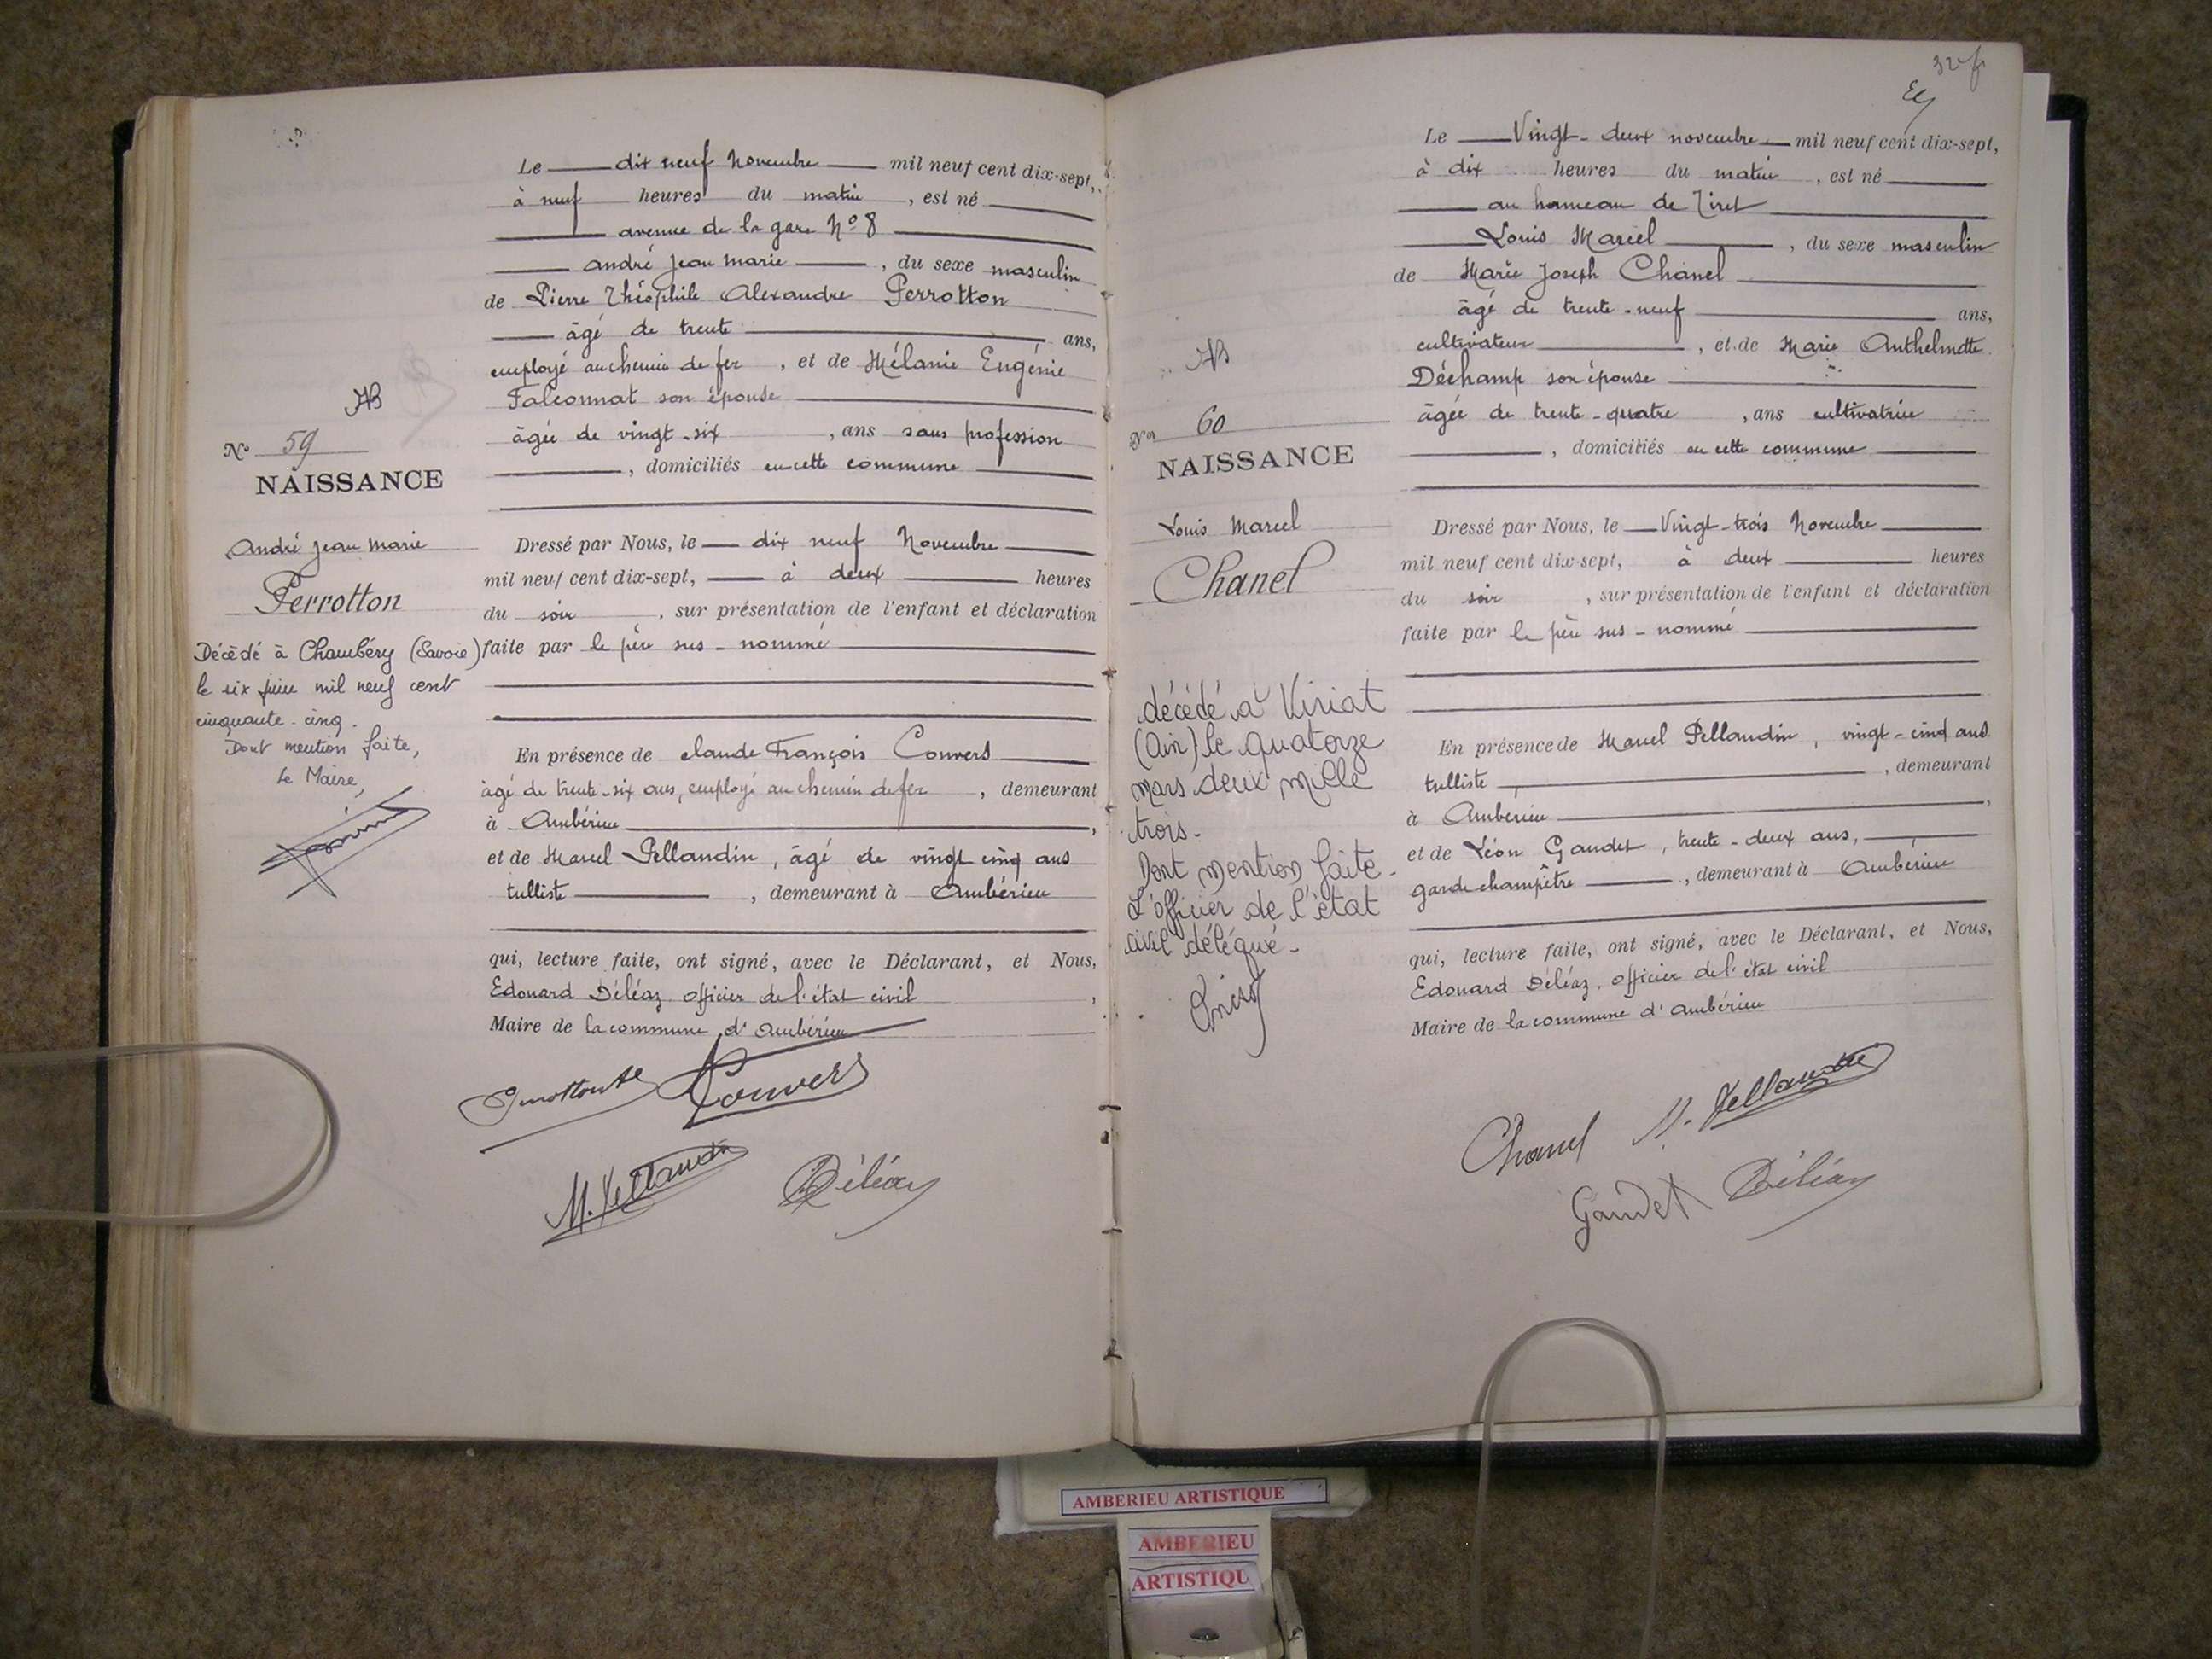 Le dix neuf Novembre mil neuf cent dix-sept,
à neuf heures du matin, est né
avenue de la gare Nº 8
andré Jean Marie, du sexe masculin
de Pierre Théophile Alexandre Perrotton
âgé de trente ans,
employé au chemin de fer, et de Mélanie Eugénie
Falconnat son épouse
âgée de vingt-six, ans sans profession
, domiciliés en cette commune
AB
Nº 59
NAISSANCE
André Jean Marie
Perrotton
Décédé à Chambéry (Savoie)
le six juin mil neuf cent
cinquante-cinq.
Dont mention faite,
Le Maire,
Dressé par Nous, le dix neuf Novembre
mil neuf cent dix-sept, à deux heures
du soir, sur présentation de l'enfant et déclaration
faite par le père sus-nommé
En présence de claude François Convers
âgé de trente-six ans, employé au chemin de fer, demeurant
à Ambérieu,
et de Marcel Pellaudin, âgé de vingt cinq ans
tulliste, demeurant à Ambérieu
qui, lecture faite, ont signé, avec le Déclarant, et Nous,
Edouard Déléaz, officier de l'état civil,
Maire de la commune d'Ambérieu
Convers
M. Pellaudin Déléaz
Le Vingt-deux novembre mil neuf cent dix-sept,
à dix heures du matin, est né
au hameau de Tiret
Louis Marcel, du sexe masculin
de Marie Joseph Chanel
âgé de trente-neuf ans,
cultivateur, et de Marie Anthelmette
Déchamp son épouse
âgée de trente-quatre, ans cultivatrice
, domiciliés en cette commune
AB
Nº 60
NAISSANCE
Louis Marcel
Chanel
décédé à Viriat
(Ain) le quatorze
mars deux mille
trois.
Dont mention faite.
L'officier de l'état
civil délégué.
Dressé par Nous, le Vingt-trois Novembre
mil neuf cent dix-sept, à deux heures
du soir, sur présentation de l'enfant et déclaration
faite par le père sus-nommé
En présence de Marcel Pellaudin, vingt-cinq ans
tulliste, demeurant
à Amberieu,
et de Léon Gaudet, trente-deux ans,
garde champêtre, demeurant à Ambérieu
qui, lecture faite, ont signé, avec le Déclarant, et Nous,
Edouard Déléaz, officier de l'état civil
Maire de la commune d'Ambérieu
Chanel M. Pellaudin
Gaudet Déléaz
AMBERIEU ARTISTIQUE
AMBERIEU
ARTISTIQU